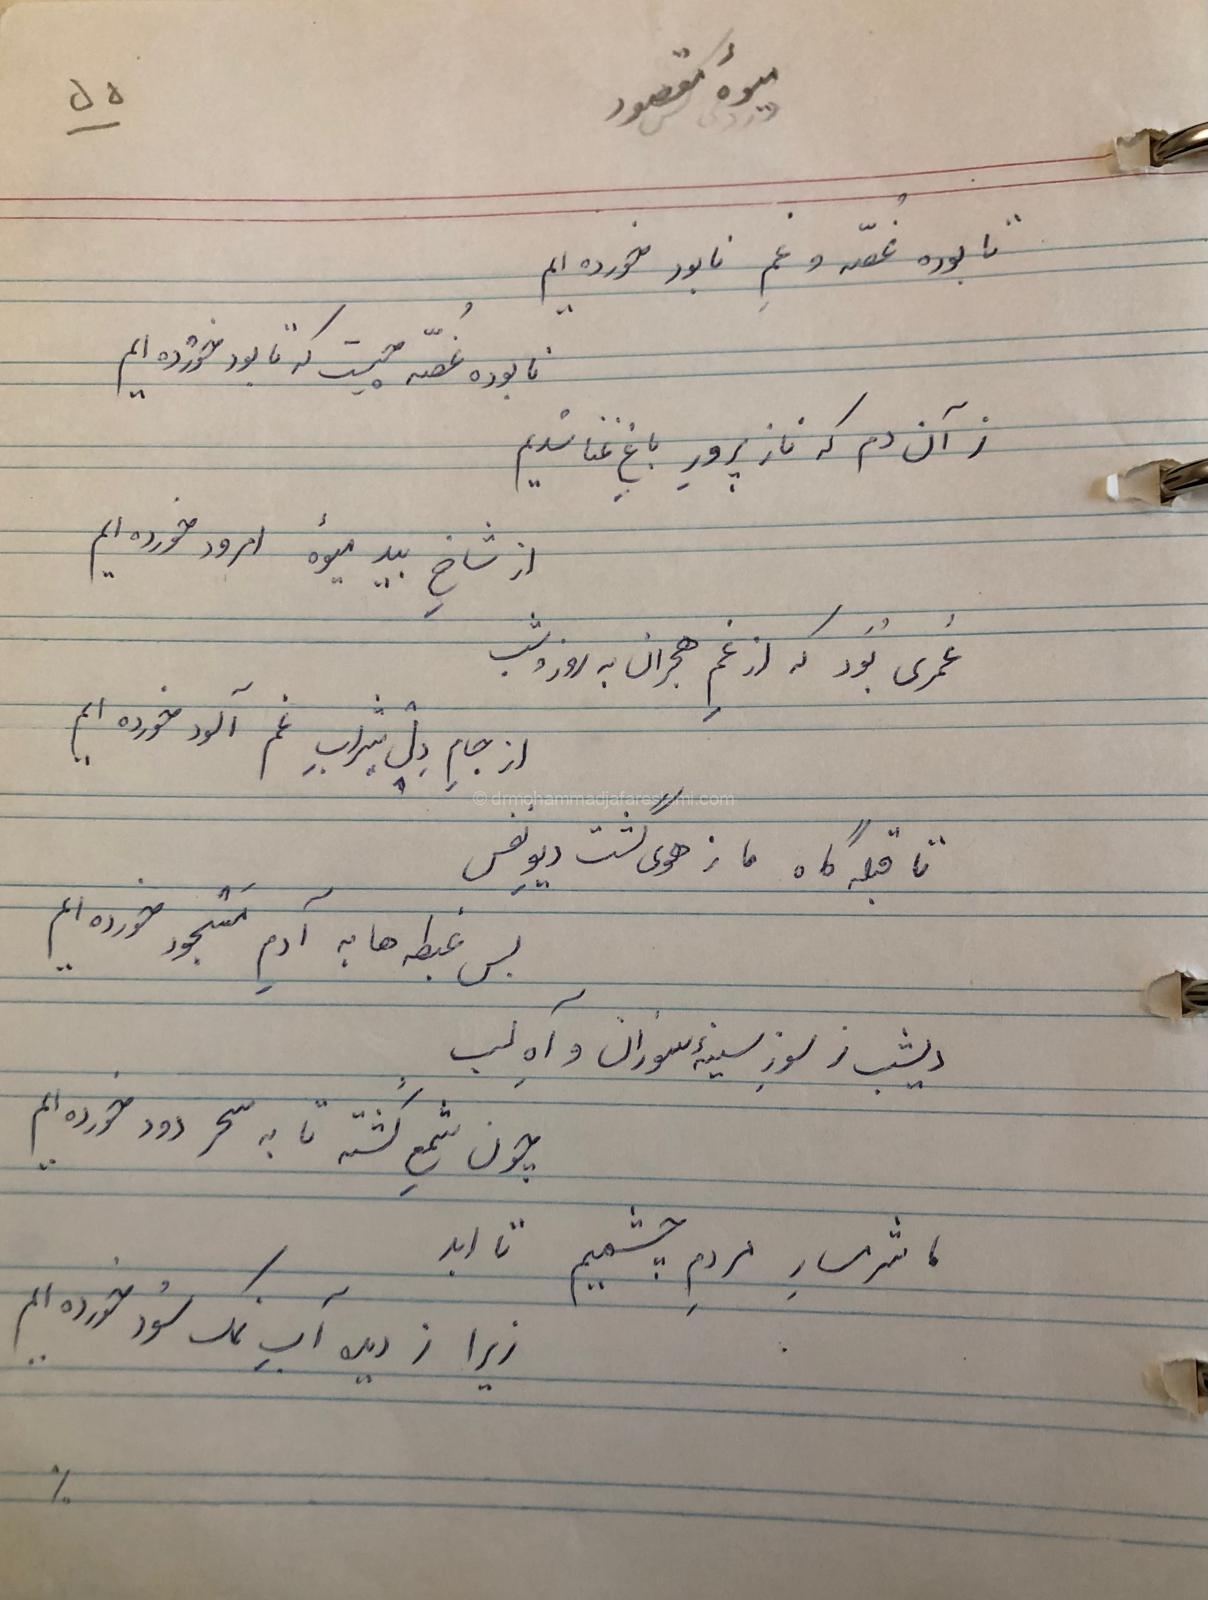 میوهٔ مقصود
۵۵
تا بوده غُصّه و غمِ نابود خورده ایم
نابوده غُصّه چیست که تا بود خورده ایم
ز آن دم که ناز پرورِ باغِ غنا شدیم
از شاخِ بید میوهٔ امرود خورده ایم
عُمری بُوَد که از غمِ هجران به روز و شب
از جامِ دِل شرابِ غم آلود خورده ایم
تا قبله گاه ما ز هوی گشت دیوِ نفس
بس غبطه ها به آدمِ مسجود خورده ایم
دیشب ز سوزِ سینهٔ سوزان و آهِ لب
چون شمعِ کُشته تا به سحر دود خورده ایم
ما شرمسارِ مردمِ چشمیم تا ابد
زیرا ز دیده آبِ نمک سُود خورده ایم
٪
© drmohammadjafareslami.com